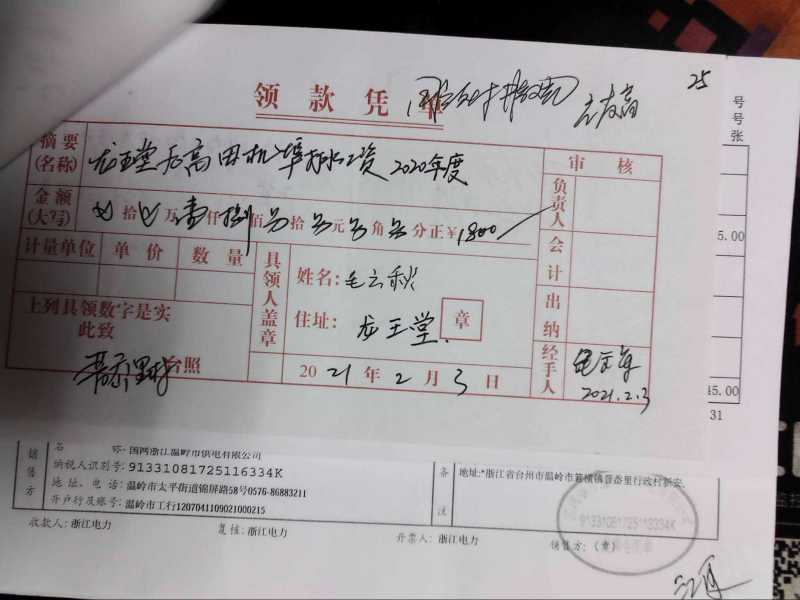 25
领款凭单
号
号
张
摘要
(名称)
龙王堂后高田机埠抽水工资 2020年度
审核
金额
(大写)
拾 万 壹仟捌佰另拾另元另角另分正￥1800
负责人
5.00
计量单位 单价 数量
具领人盖章
姓名:毛云秋
会计
上列具领数字是实
此致
住址: 龙王堂. 章
出纳
台照
2021年2月3日
经手人
2021.2.3
45.00
31
销售方
名 称:国网浙江温岭市供电有限公司
纳税人识别号:91331081725116334K
地址、电话:温岭市太平街道锦屏路58号0576-86883211
开户行及账号:温岭市工行1207041109021000215
备注
地址:*浙江省台州市温岭市箬横镇晋岙里行政村新安.
91331081725116334K
收款人:浙江电力 复核:浙江电力 开票人:浙江电力 销售方:(章)